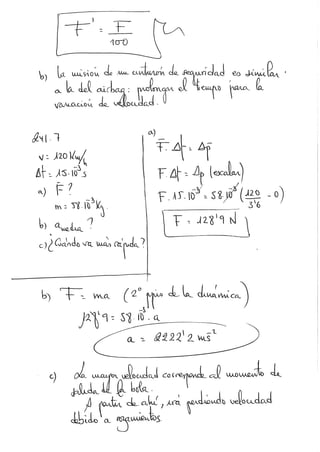 F' = F/100
b) la misión de un cinturón de seguridad es similar
a la del airbag: prolongar el tiempo para la
variación de velocidad.
241.7
v = 120 Km/h
Δt = 15·10⁻³ s
a) F̄?
m = 58·10⁻³ Kg
b) a media?
c) ¿Cuándo va más rápida?
a)
F̄·Δt = Δp̄
F·Δt = Δp (escalar)
F·15·10⁻³ = 58·10⁻³ (120/3'6 - 0)
F = 128'9 N
b) F = ma (2º ppio de la dinámica)
128'9 = 58·10⁻³·a
a = 2222'2 ms⁻²
c) La mayor velocidad corresponde al momento de
salida de la bola.
A partir de ahí, irá perdiendo velocidad
debido a rozamientos.